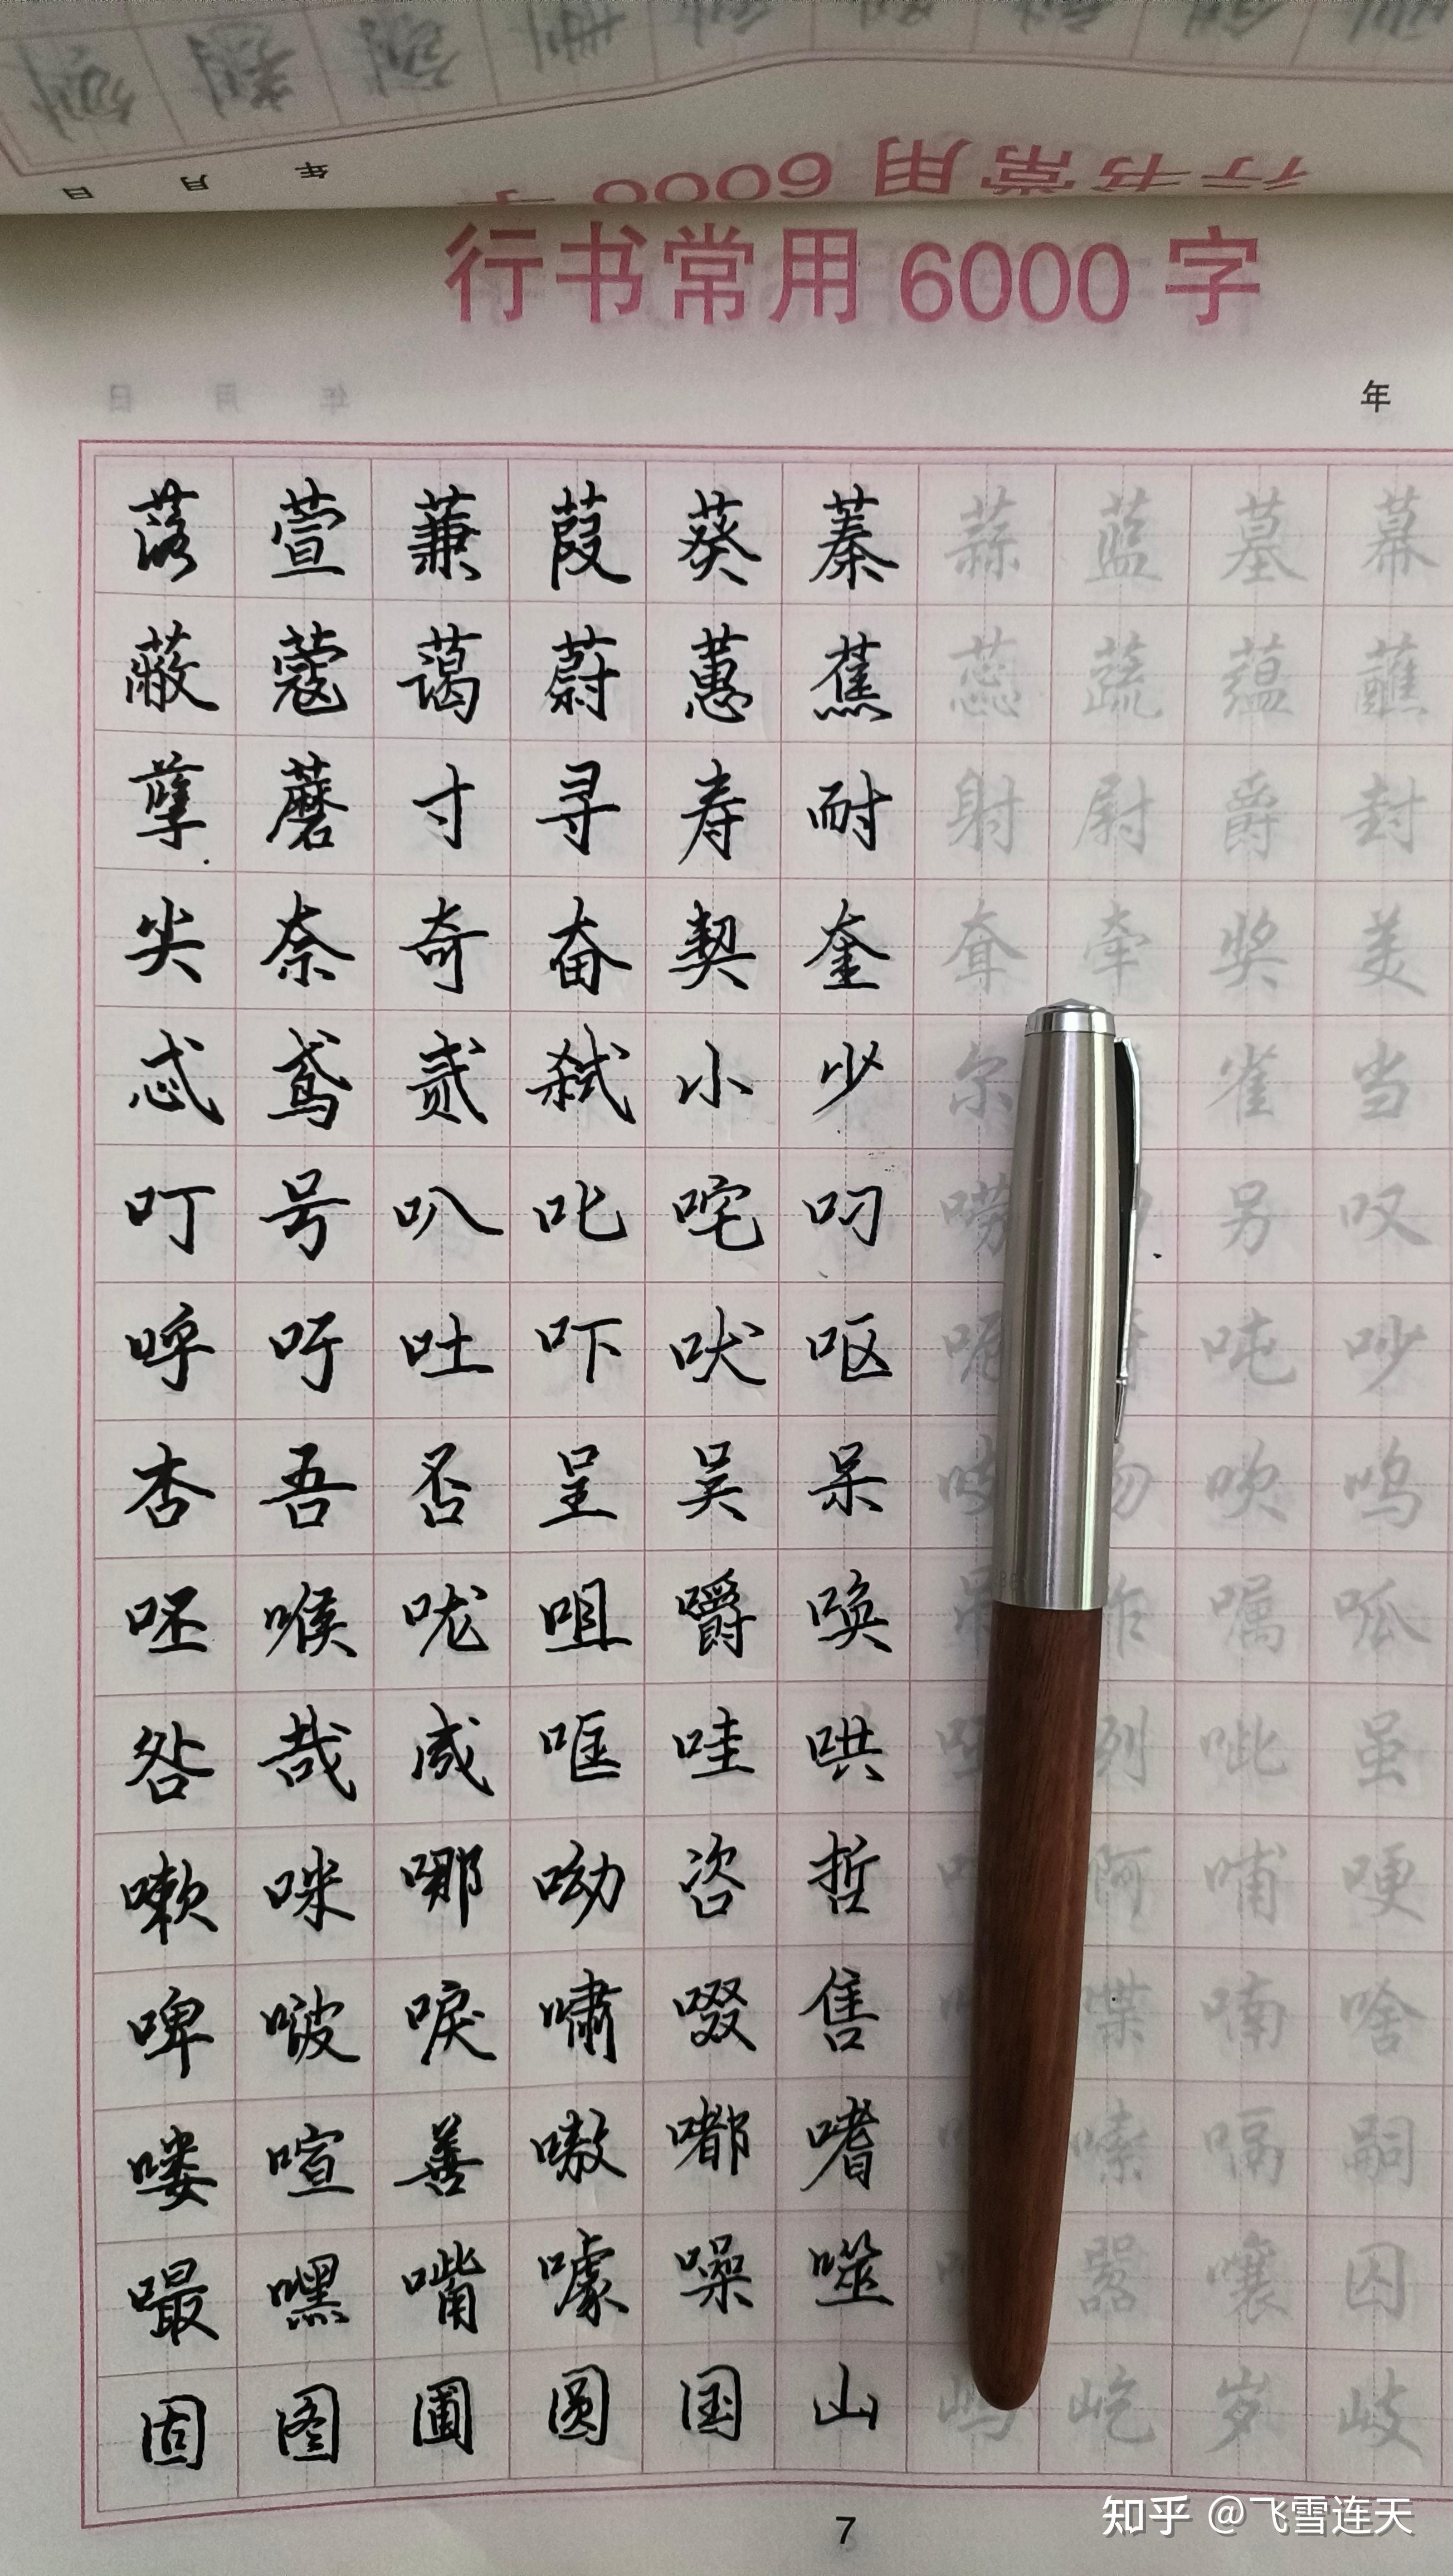 行书常用 6000 字
行书常用 6000 字
年 月 日
年
落 萱 蒹 葭 葵 蓁 蒜 蓝 墓 幕
蔽 蔻 蔼 蔚 蕙 蕉 蕊 蔬 蕴 蘸
孽 蘑 寸 寻 寿 耐 射 尉 爵 封
尖 奈 奇 奋 契 奎 耷 牵 奖 美
忒 鸢 贰 弑 小 少 尔 雀 当
叮 号 叭 叱 咤 叼 唠 另 叹
呼 吁 吐 吓 吠 呕 吨 吵
杏 吾 否 呈 吴 呆 吻 吹 呜
呸 喉 咙 咀 嚼 唤 咋 嘱 呱
咎 哉 咸 哐 哇 哄 咧 呲 虽
嗽 咪 哪 呦 咨 哲 啊 哺 哽
啤 啵 唳 啸 啜 售 喋 喃 啥
喽 喧 善 嗷 嘟 嗜 嗦 嗝 嗣
嘬 嘿 嘴 噱 噪 噬 嚣 嚷 囚
固 图 圃 圆 国 山 屹 岁 岐
7
知乎 @飞雪连天